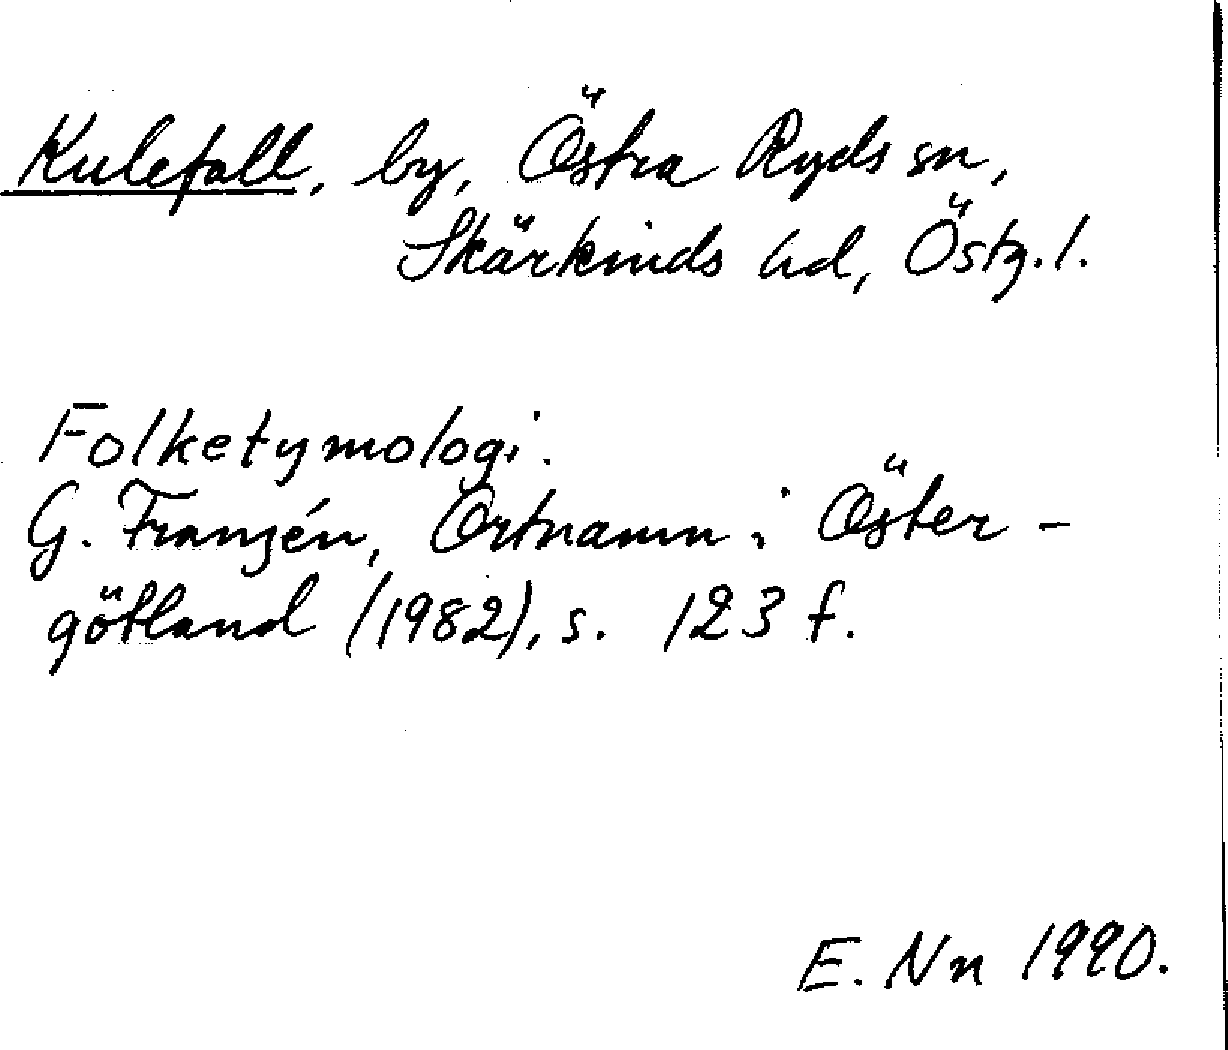 Kulefall, by, Östra Ryds sn,
Skärkinds hd, Östg. l.
Folketymologi.
G. Franzén, Ortnamn i Öster-
götland (1982), s. 123 f.
E. Nn 1990.